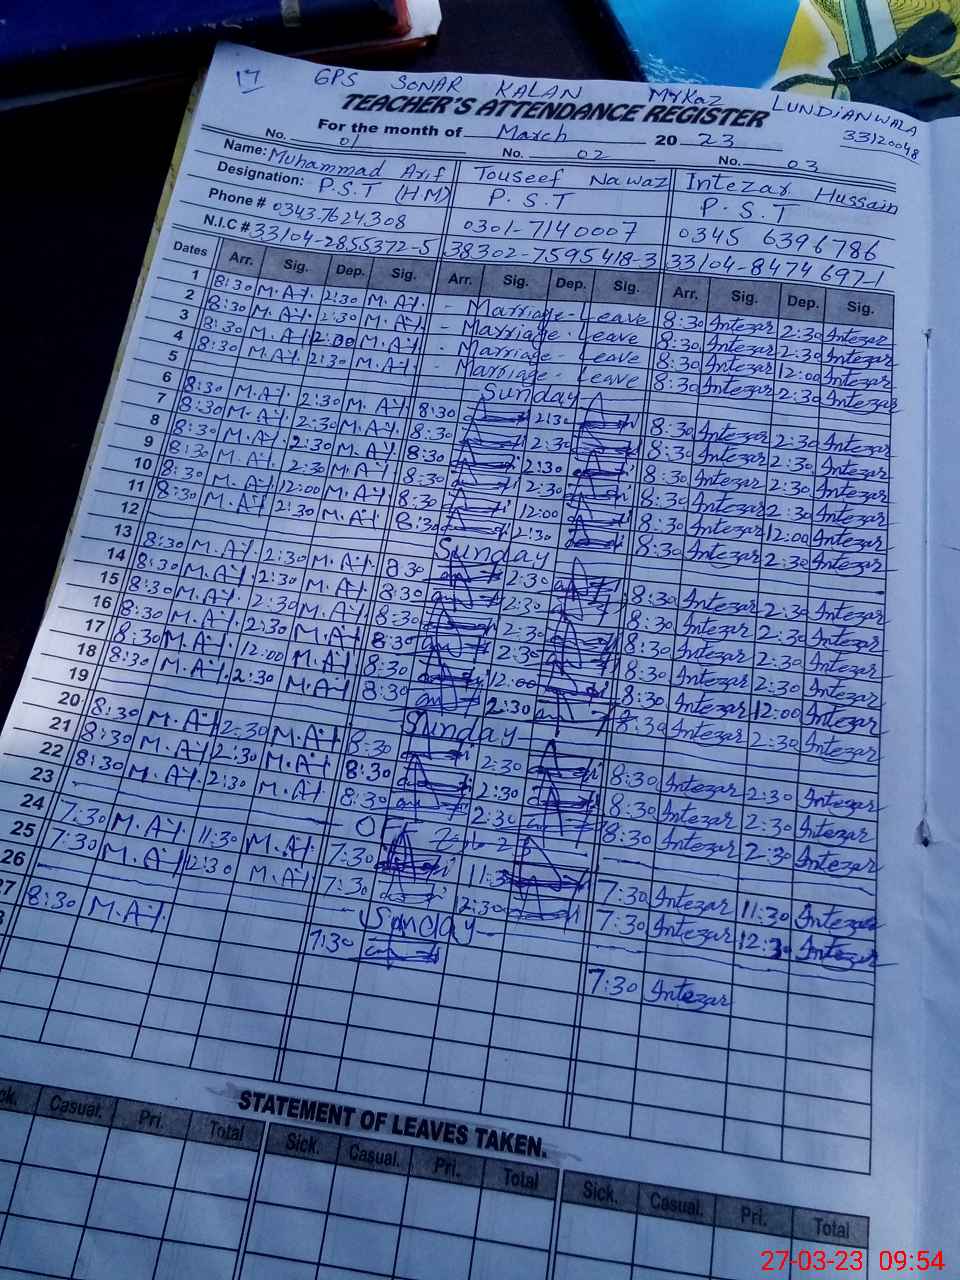 17 GPS SONAR KALAN MrKaz LUNDIANWALA
TEACHER'S ATTENDANCE REGISTER
33120048
For the month of March 20 23
No. 01 No. 02 No. 03
Name: Muhammad Arif Touseef Nawaz Intezar Hussain
Designation: P.S.T (HM) P.S.T P.S.T
Phone # 0343-7624308 0301-7140007 0345 6396786
N.I.C # 33104-2855372-5 38302-7595418-3 33104-8474697-1
Dates Arr. Sig. Dep. Sig. Arr. Sig. Dep. Sig. Arr. Sig. Dep. Sig.
1 8:30 M.Af. 2:30 M.Af. - Marriage - Leave 8:30 Intezar 2:30 Intezar
2 8:30 M.Af. 2:30 M.Af. - Marriage - Leave 8:30 Intezar 2:30 Intezar
3 8:30 M.Af 12:00 M.Af - Marriage - Leave 8:30 Intezar 12:00 Intezar
4 8:30 M.Af. 2:30 M.Af. - Marriage - Leave 8:30 Intezar 2:30 Intezar
5 Sunday
6 8:30 M.Af. 2:30 M.Af 8:30 2:30 8:30 Intezar 2:30 Intezar
7 8:30 M.Af. 2:30 M.Af. 8:30 2:30 8:30 Intezar 2:30 Intezar
8 8:30 M.Af. 2:30 M.Af. 8:30 2:30 8:30 Intezar 2:30 Intezar
9 8:30 M.Af. 2:30 M.Af. 8:30 2:30 8:30 Intezar 2:30 Intezar
10 8:30 M.Af 12:00 M.Af. 8:30 12:00 8:30 Intezar 12:00 Intezar
11 8:30 M.Af 2:30 M.Af. 8:30 2:30 8:30 Intezar 2:30 Intezar
12 Sunday
13 8:30 M.Af. 2:30 M.Af. 8:30 2:30 8:30 Intezar 2:30 Intezar
14 8:30 M.Af 2:30 M.Af. 8:30 2:30 8:30 Intezar 2:30 Intezar
15 8:30 M.Af. 2:30 M.Af. 8:30 2:30 8:30 Intezar 2:30 Intezar
16 8:30 M.Af. 2:30 M.Af. 8:30 2:30 8:30 Intezar 2:30 Intezar
17 8:30 M.Af. 12:00 M.Af 8:30 12:00 8:30 Intezar 12:00 Intezar
18 8:30 M.Af. 2:30 M.Af 8:30 2:30 8:30 Intezar 2:30 Intezar
19 Sunday
20 8:30 M.Af 2:30 M.Af 8:30 2:30 8:30 Intezar 2:30 Intezar
21 8:30 M.Af 2:30 M.Af. 8:30 2:30 8:30 Intezar 2:30 Intezar
22 8:30 M.Af. 2:30 M.Af 8:30 2:30 8:30 Intezar 2:30 Intezar
23
24 7:30 M.Af 11:30 M.Af. 7:30 11:30 7:30 Intezar 11:30 Intezar
25 7:30 M.Af 12:30 M.Af 7:30 12:30 7:30 Intezar 12:30 Intezar
26 Sunday
27 8:30 M.Af. 7:30 7:30 Intezar
STATEMENT OF LEAVES TAKEN.
Casual. Pri. Total Sick. Casual. Pri. Total Sick. Casual. Pri. Total
27-03-23 09:54